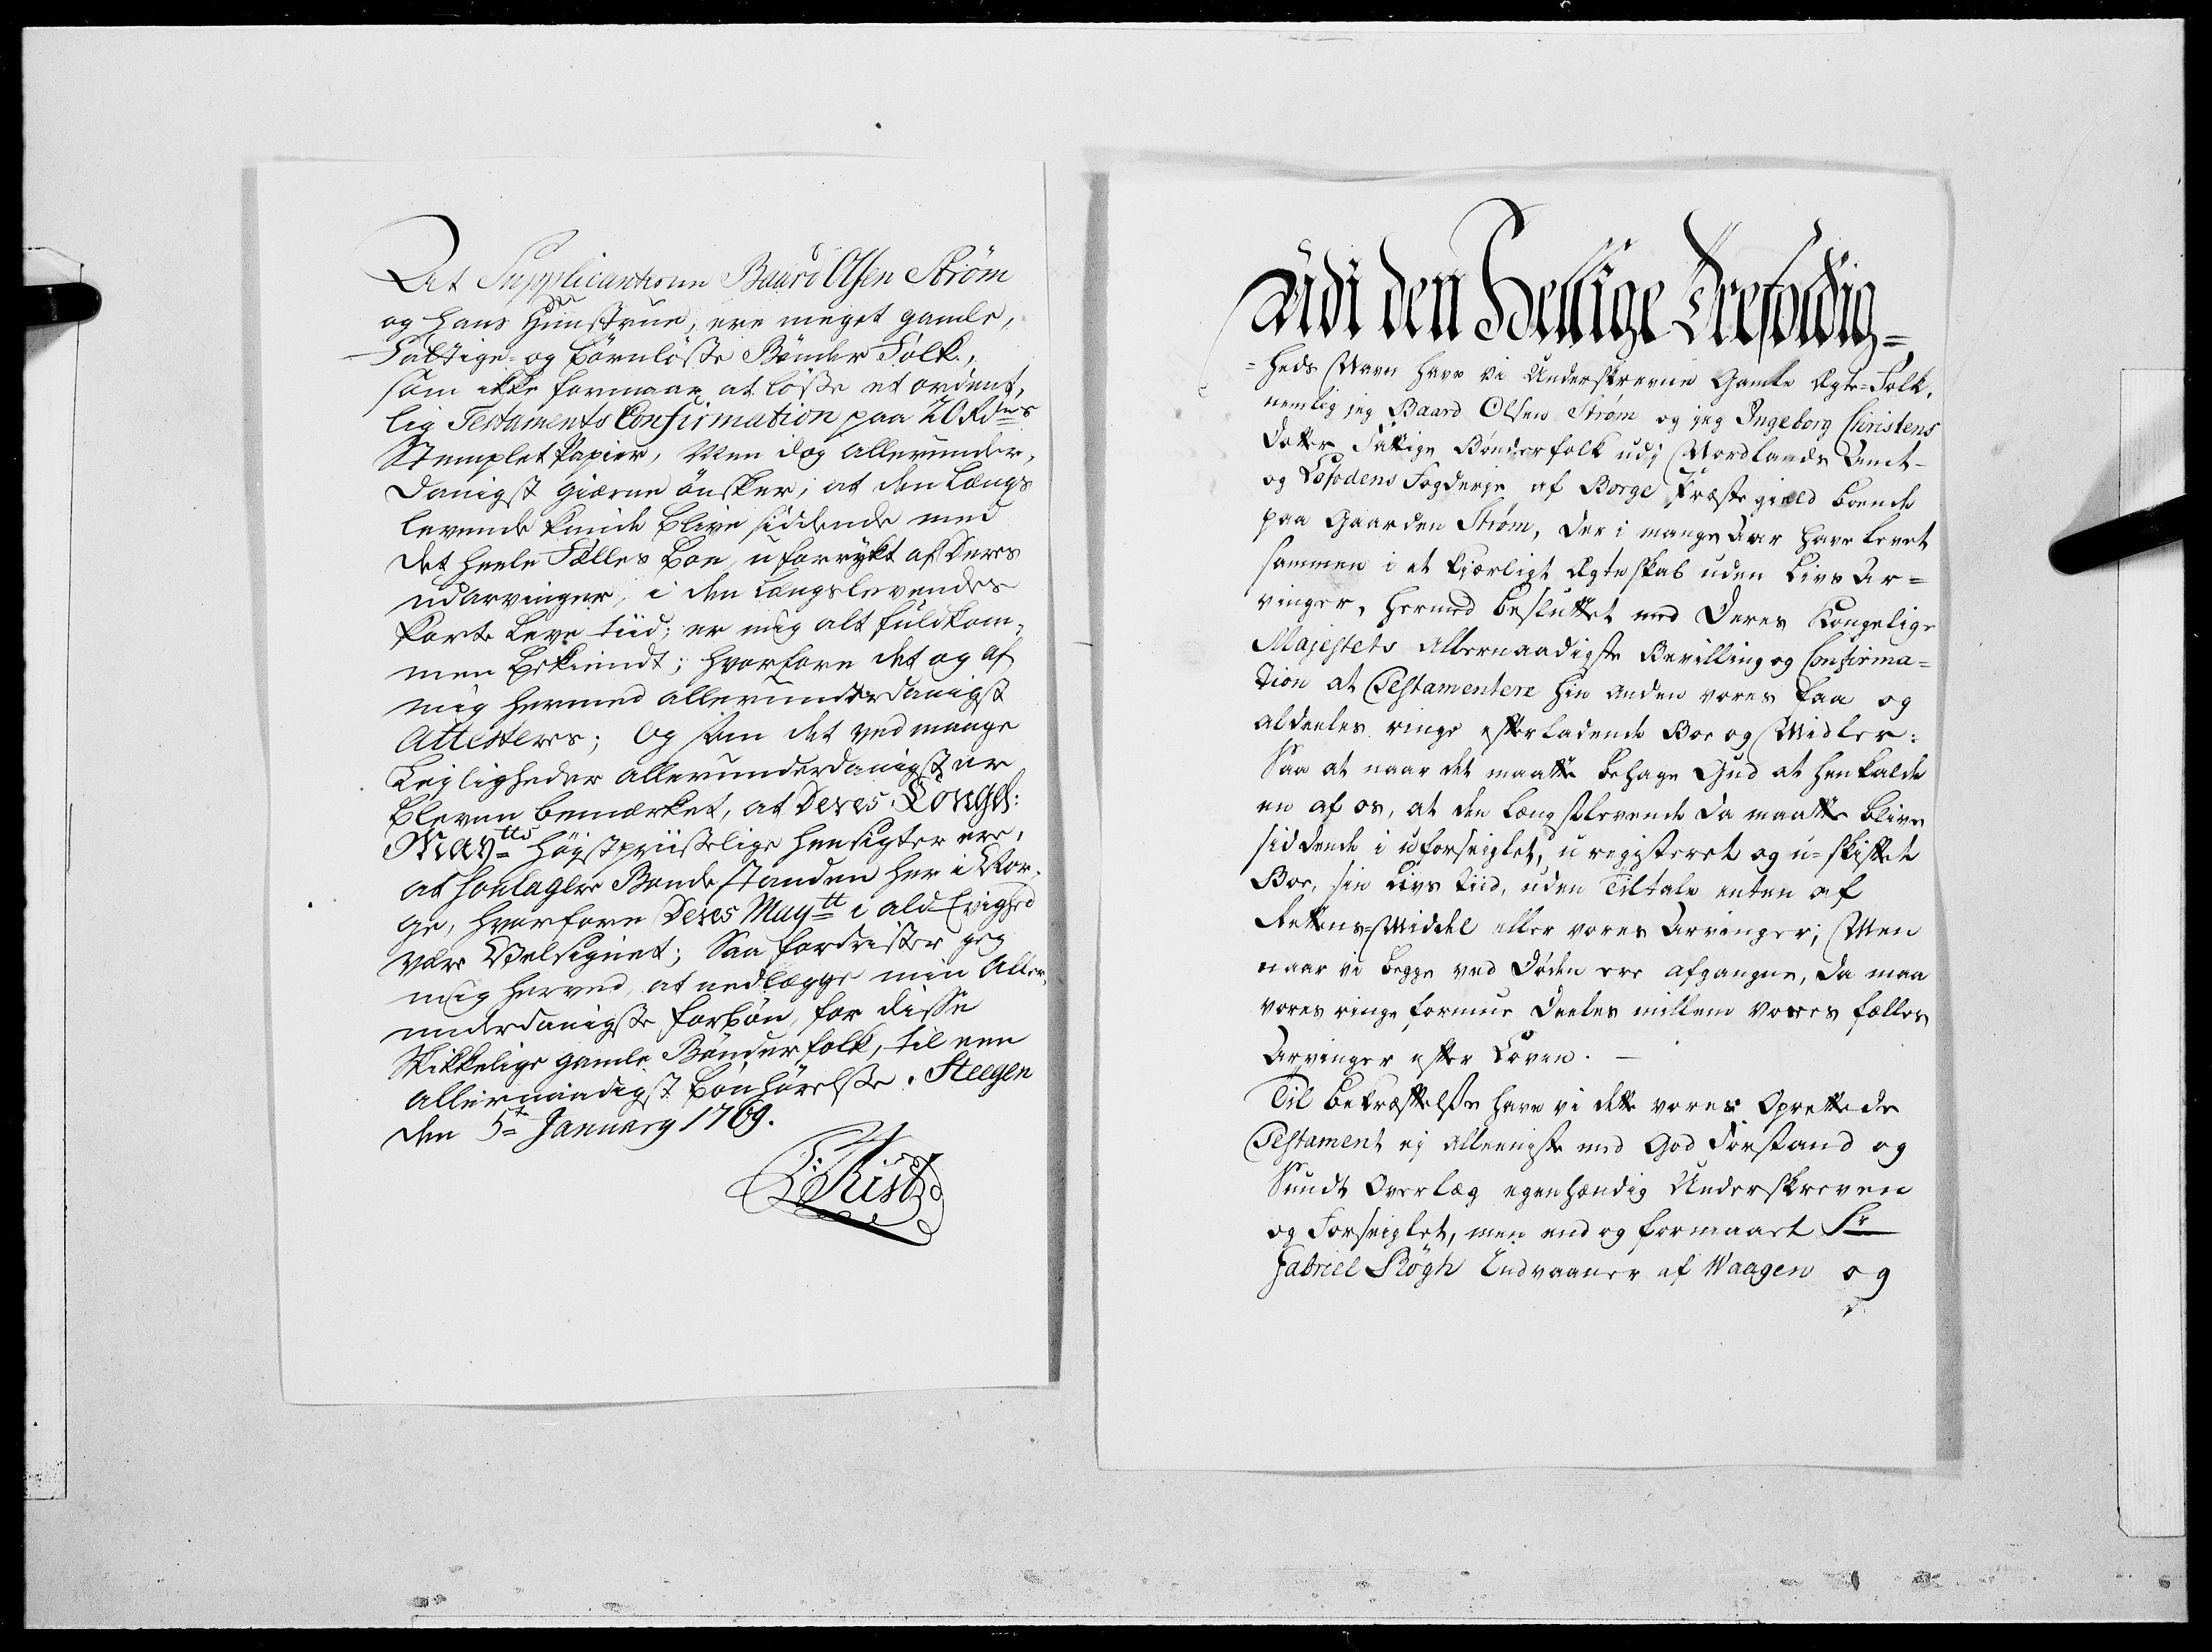 At Supplicanterne Baard Olsen Strøm
og hans Hunstrue, ere meget gamle,
Fattige- og børnløsse Bønder Folk,
som ikke formaar at løsse et ordent,
lig Testaments Confirmation paa 20 Rdrs
Stemplet Papier, Men dog allerunder,
danigst gierne ønsker, at den Længs
levende kunde blive siddende med
det heele Fælles boe uforrykt af Deres
udarvinger, i den Længslevendes
korte Leve tiid; er mig alt fuldkom,
men bekiendt; hvorfore det og af
mig hermed allerunderdanigst
Attesteres; Og som det ved mange
Leyligheder allerunderdanigst er
bleven bemærket, at Deres Kongel:
Maytts högstpriisselige hensigter ere,
at soulagere Bonde standen her i Nor,
ge, hvorfore Deres Maytt i ald Evighed
være Velsignet; Saa fordrister jeg
mig herved, at nedlægge min Aller,
underdanigste forbøn, for disse
skikkelige gamle Bønderfolk, til een
allernaadigst bønhørelsse. Steegen
den 5te January 1769.
Kist
Udi den Hellige Trefoldig=
=heds Navn have vi Underskrevne Gamle Egte=Folk,
nemlig jeg Baard Olsen Strøm og jeg Ingeborg Christens
Datter Fattige Bønderfolk udj Nordlands Amt
og Lofodens Fogderje af Borge Præstegield boende
paa Gaarden Strøm, der i mange Aar have levet
sammen i et kjærligt Egteskab uden Livs Ar=
vinger, hermed besluttet med Deres Kongelige
Majestets Allernaadigste Bevilling og Confirma=
tion at Testamentere hin anden vores faa og
aldeeles ringe efterladende Boe og Midler:
Saa at naar det maatte behage Gud at henkalde
en af os, at den Længstlevende da maatte blive
siddende i uforseiglet, uregisteret og u=skiftet
Boe, sin Livs Tiid, uden Tiltale enten af
Rettens=Middel eller vores Arvinger; Men
naar vi begge ved Døden ere afgangne, da maa
vores ringe formue deeles millem vores fælles
Arvinger efter Loven.
Til bekræftelsse have vi dette vores Oprettede
Testament ej alleeniste med God Forstand og
Sundt Overlæg egenhændig Underskreven
og Forseiglet, men end og formaaet Sr
Gabriel Røgh Indvaaner af Waagen og